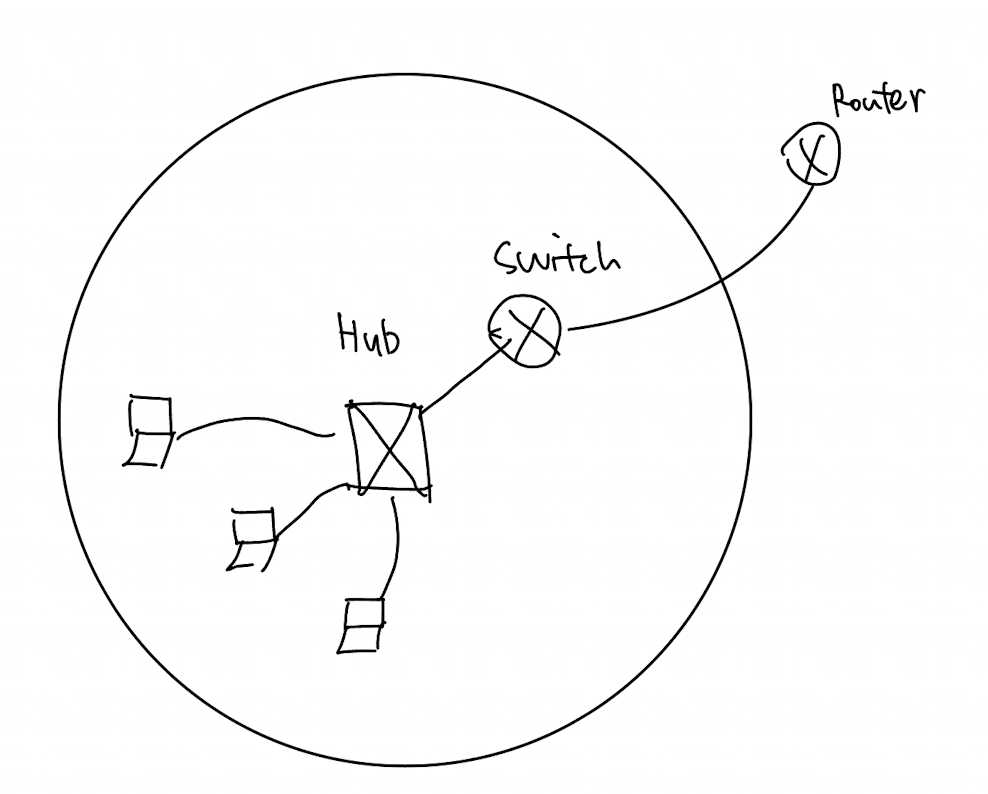 Router
Switch
Hub